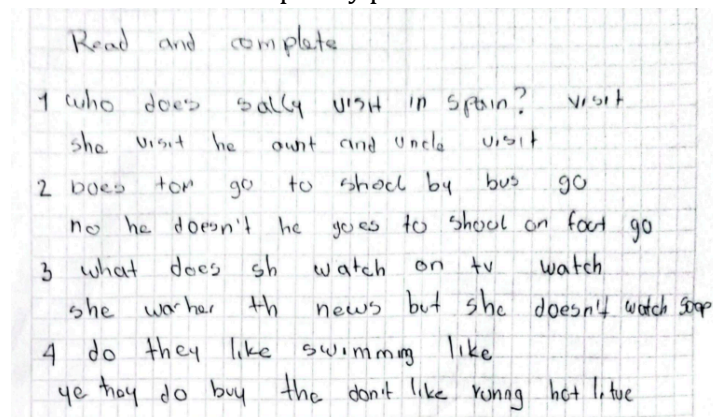 Read and complete
1 who does sally visit in spain? visit
she visit he aunt and uncle visit
2 boes tom go to shocl by bus go
no he doesn't he goes to shool on foot go
3 what does sh watch on tv watch
she washer th news but she doesn't watch soap
4 do they like swimming like
ye they do buy the don't like runng